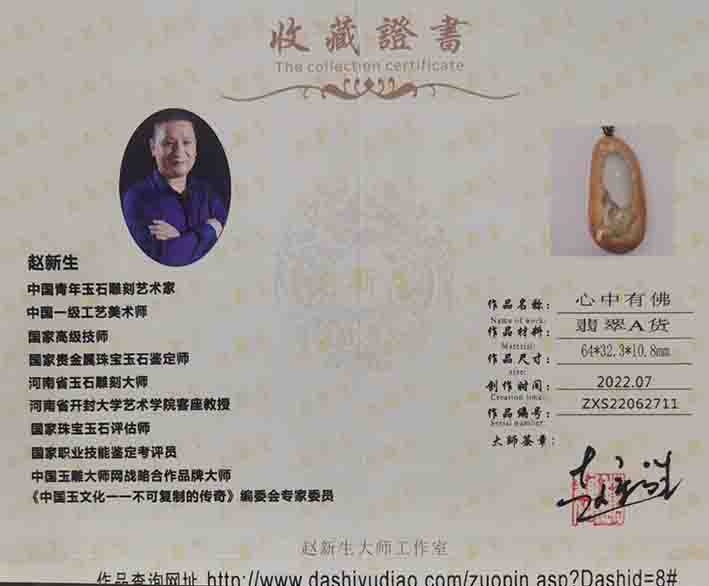 收藏證書
The collection certificate
赵新生
中国青年玉石雕刻艺术家
中国一级工艺美术师
国家高级技师
国家贵金属珠宝玉石鉴定师
河南省玉石雕刻大师
河南省开封大学艺术学院客座教授
国家珠宝玉石评估师
国家职业技能鉴定考评员
中国玉雕大师网战略合作品牌大师
《中国玉文化一一不可复制的传奇》编委会专家委员
作品名称： 心中有佛
Name of work:
作品材料： 翡翠A货
Material:
作品尺寸： 64*32.3*10.8mm
size:
创作时间： 2022.07
Creation time:
作品编号： ZXS22062711
Serial number:
大師签章：
赵新生大师工作室
作品查询网址 http://www.dashiyudiao.com/zuopin.asp?Dashid=8#